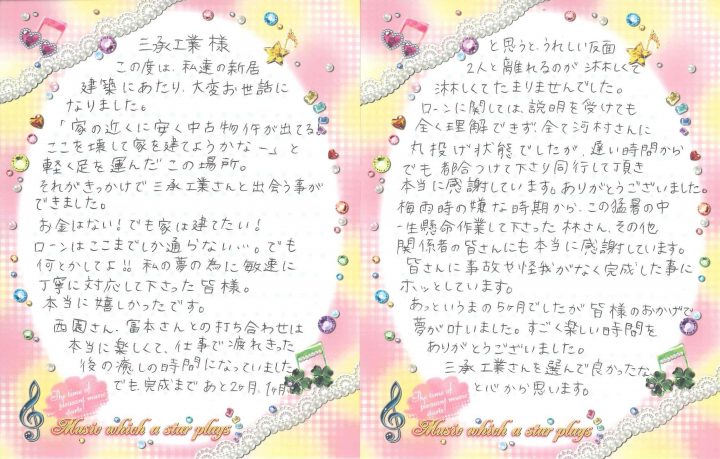 三承工業様
この度は、私達の新居
建築にあたり、大変お世話に
なりました。
「家の近くに安く中古物件が出てる。
ここを壊して家を建てようかなー」と
軽く足を運んだこの場所。
それがきっかけで三承工業さんと出会う事が
できました。
お金はない!でも家は建てたい!
ローンはここまでしか通らない…。でも
何とかしてよ!!私の夢の為に敏速に
丁寧に対応して下さった皆様。
本当に嬉しかったです。
西園さん、冨本さんとの打ち合わせは
本当に楽しくて、仕事で疲れきった
後の癒しの時間になっていました。
でも、完成まであと2ヶ月、1ヶ月
The time of
pleasant music
starts
Music which a star plays
と思うと、うれしい反面
2人と離れるのが淋しくて
淋しくてたまりませんでした。
ローンに関しては、説明を受けても
全く理解できず、全て河村さんに
丸投げ状態でしたが、遅い時間から
でも都合つけて下さり同行して頂き
本当に感謝しています。ありがとうございました。
梅雨時の嫌な時期から、この猛暑の中
一生懸命作業して下さった林さん、その他
関係者の皆さんにも本当に感謝しています。
皆さんに事故や怪我がなく完成した事に
ホッとしています。
あっというまの5ヶ月でしたが皆様のおかげで
夢が叶いました。すごく楽しい時間を
ありがとうございました。
三承工業さんを選んで良かったな
と心から思います。
The time of
pleasant music
starts
Music which a star plays